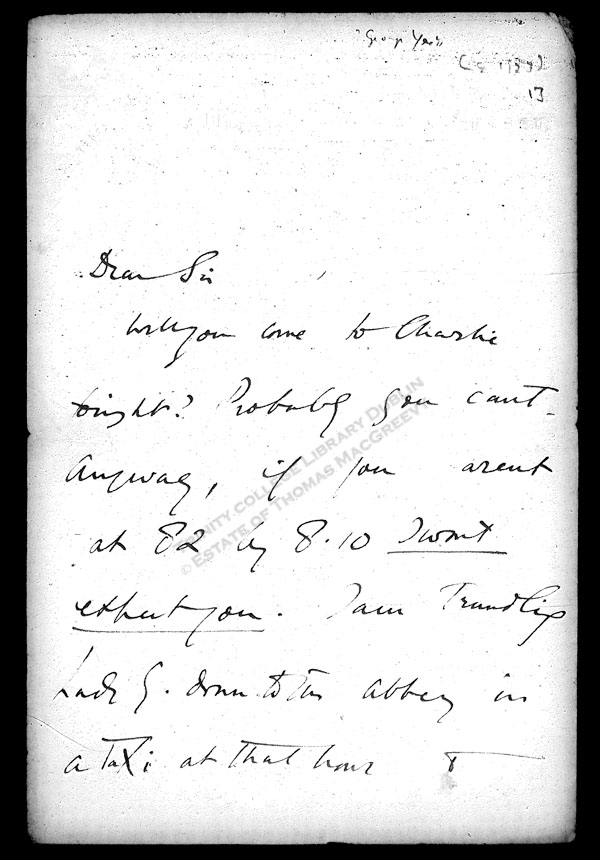 George Yeats
13
Dear Sir
Will you come to Charlie
tonight? Probably you cant-
Anyway, if you arent
at 82 by 8.10 I wont
expect you. I am Trundling
Lady G. down to the Abbey in
a taxi at that hour
© TRINITY COLLEGE LIBRARY DUBLIN
© ESTATE OF THOMAS MACGREEVY